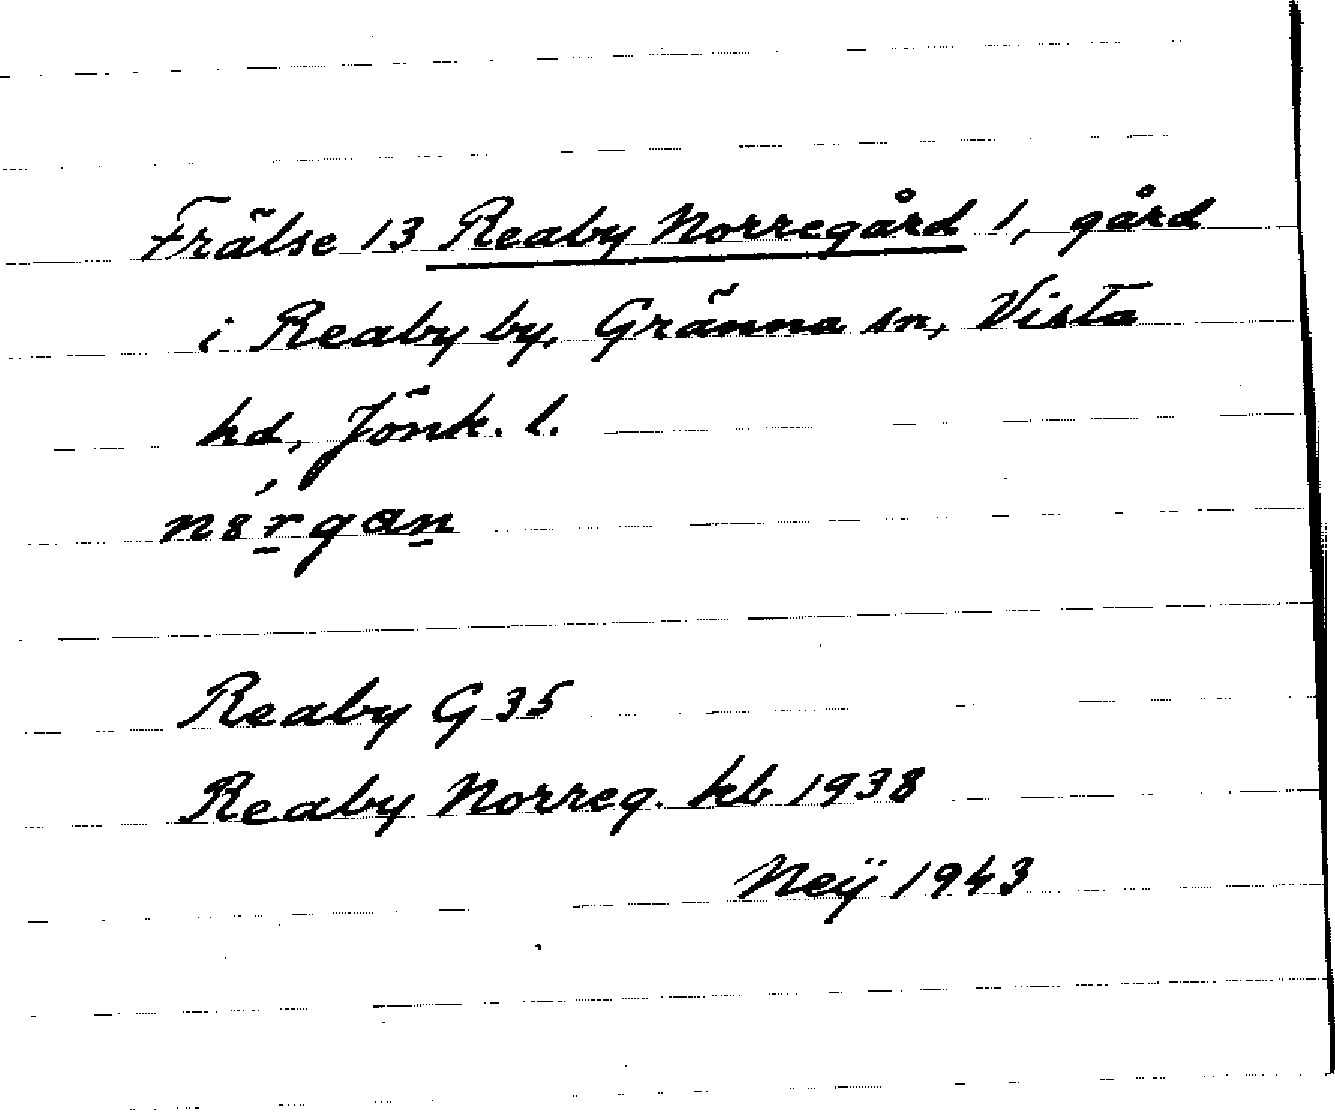 Frälse 13 Reaby Norregård 1, gård
i Reaby by, Gränna sn, Vista
hd, Jönk. l.
Reaby G 35
Reaby Norreg. kb 1938
Neÿ 1943